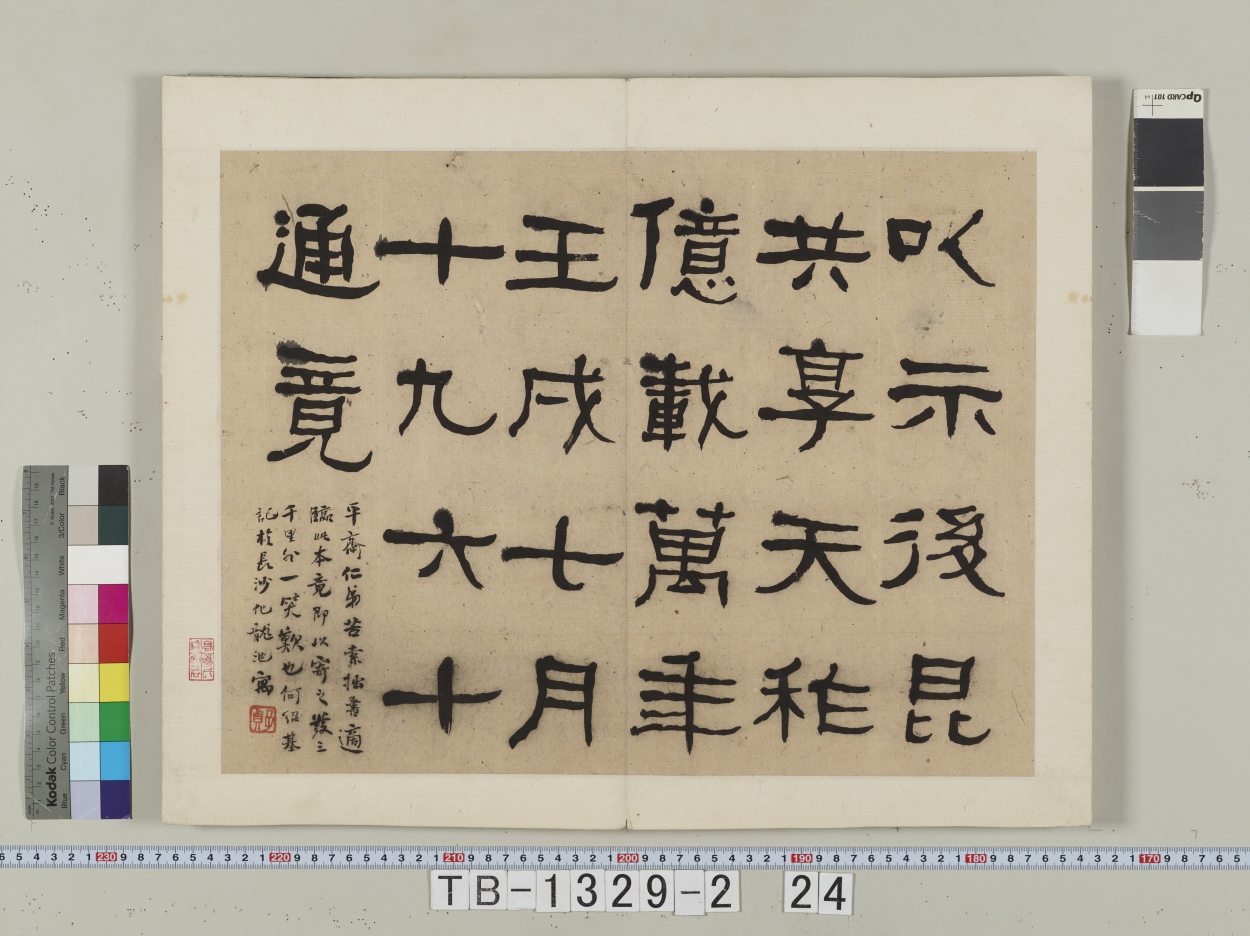 以示後昆
共享天祚
億載萬年
壬戌七月
十九六十
通竟
平齋仁弟苦索拙書適
臨此本竟即以寄之發三
千里外一笑歎也何紹基
記於長沙化龍池寓
子貞
QPCARD 101
Kodak Color Control Patches
Blue Cyan Green Yellow Red Magenta White 3/Color Black
230 220 210 200 190 180 170
TB-1329-2 24